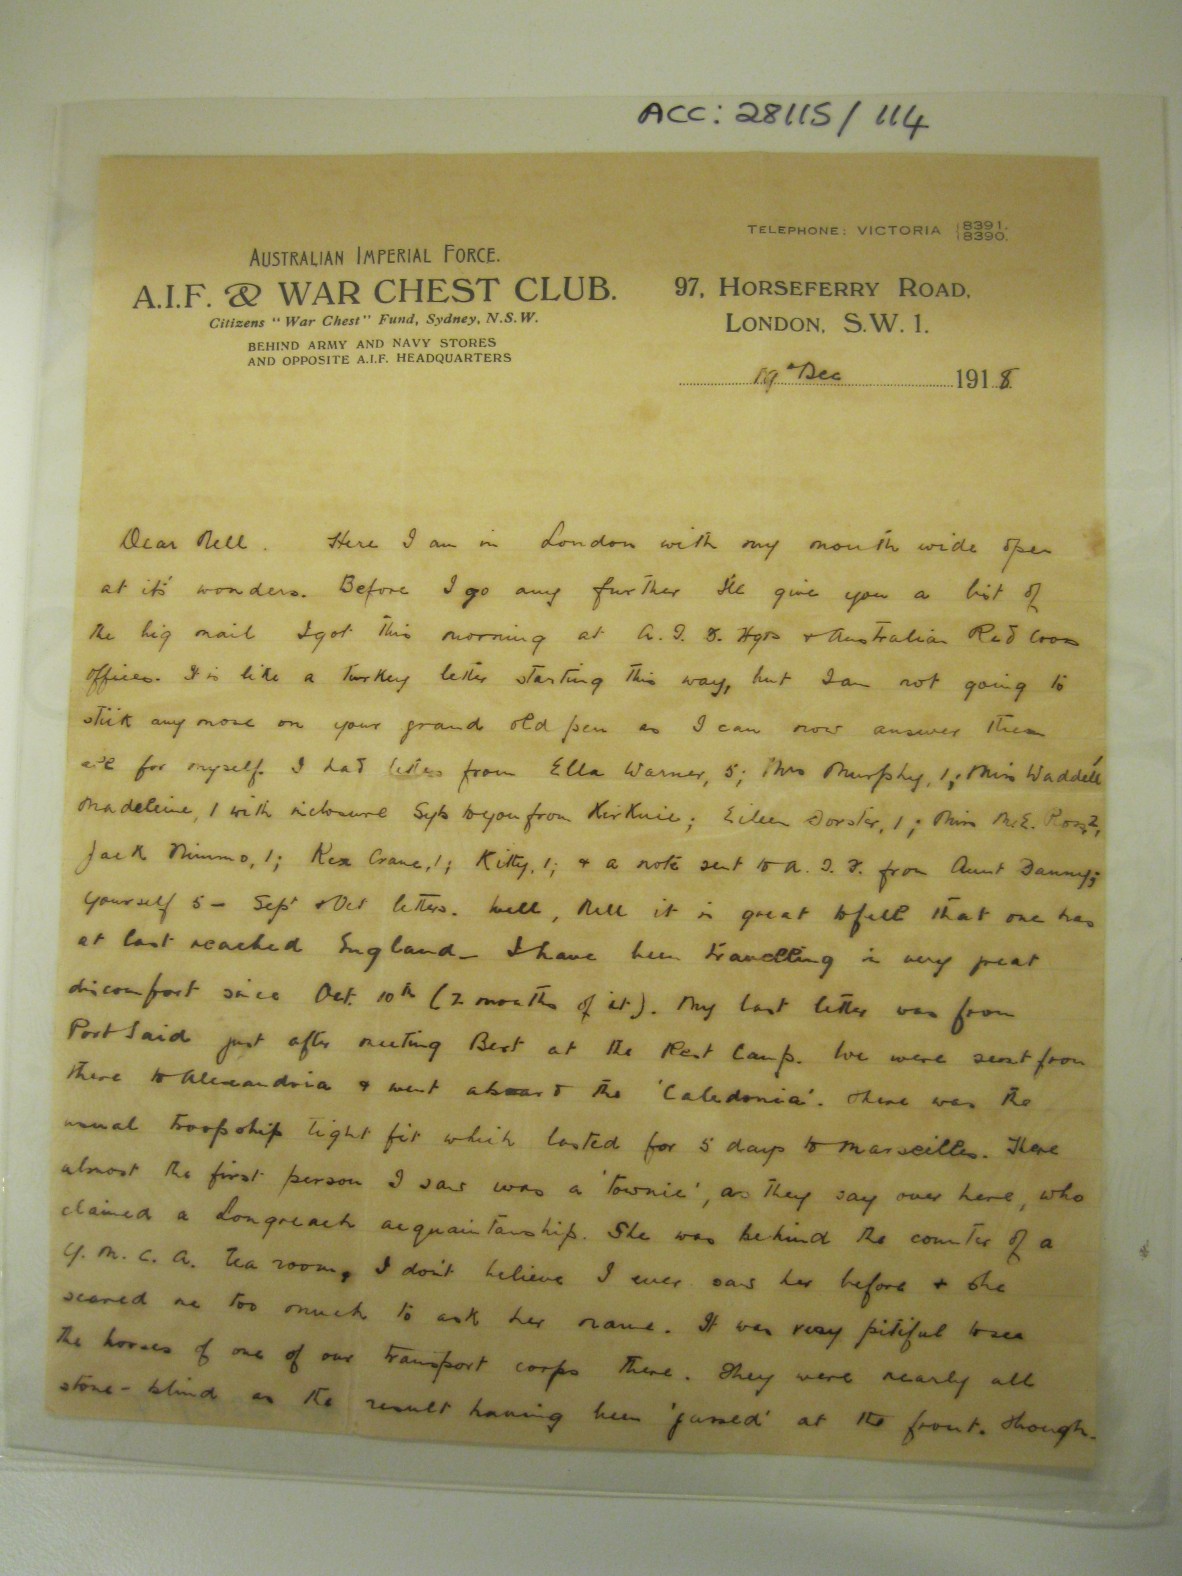 ACC: 28115/114
TELEPHONE: VICTORIA 8391.
8390.
AUSTRALIAN IMPERIAL FORCE.
A.I.F. & WAR CHEST CLUB.
Citizens "War Chest" Fund, Sydney, N.S.W.
BEHIND ARMY AND NAVY STORES
AND OPPOSITE A.I.F. HEADQUARTERS
97, HORSEFERRY ROAD,
LONDON, S.W. 1.
19th Dec 1918
Dear Nell. Here I am in London with my mouth wide open
at it's wonders. Before I go any further I'll give you a list of
the big mail I got this morning at A.I.F. Hqrs & Australian Red Cross
offices. It is like a Turkey letter starting this way, but I am not going to
stick any more on your grand old pen as I can now answer them
all for myself. I had letters from Ella Warner, 5; Mrs Murphy, 1; Miss Waddell 1
Madeline, 1 with inclosure Sgts to you from Kirkuie; Eileen Dorster, 1; Miss McE. Ross, 2,
Jack Nimmo, 1; Rex Crane, 1; Kitty, 1; & a note sent to A.I.F. from Aunt Danny;
Yourself 5 - Sept & Oct letters. Well, Nell it is great to feel that one has
at last reached England - I have been travelling in very great
discomfort since Oct. 10th (2 months of it). My last letter was from
Port Said just after meeting Bert at the Rest Camp. We were sent from
there to Alexandria & went aboard the 'Caledonia'. There was the
usual troopship tight fit which lasted for 5 days to Marseilles. There
almost the first person I saw was a 'townie', as they say over here, who
claimed a Longreach acquaintanship. She was behind the counter of a
Y.M.C.A. Tea room, I don't believe I ever saw her before & she
scared me too much to ask her name. It was very pitiful to see
the horses of one of our transport corps there. They were nearly all
stone-blind as the result having been 'gassed' at the front. Though-